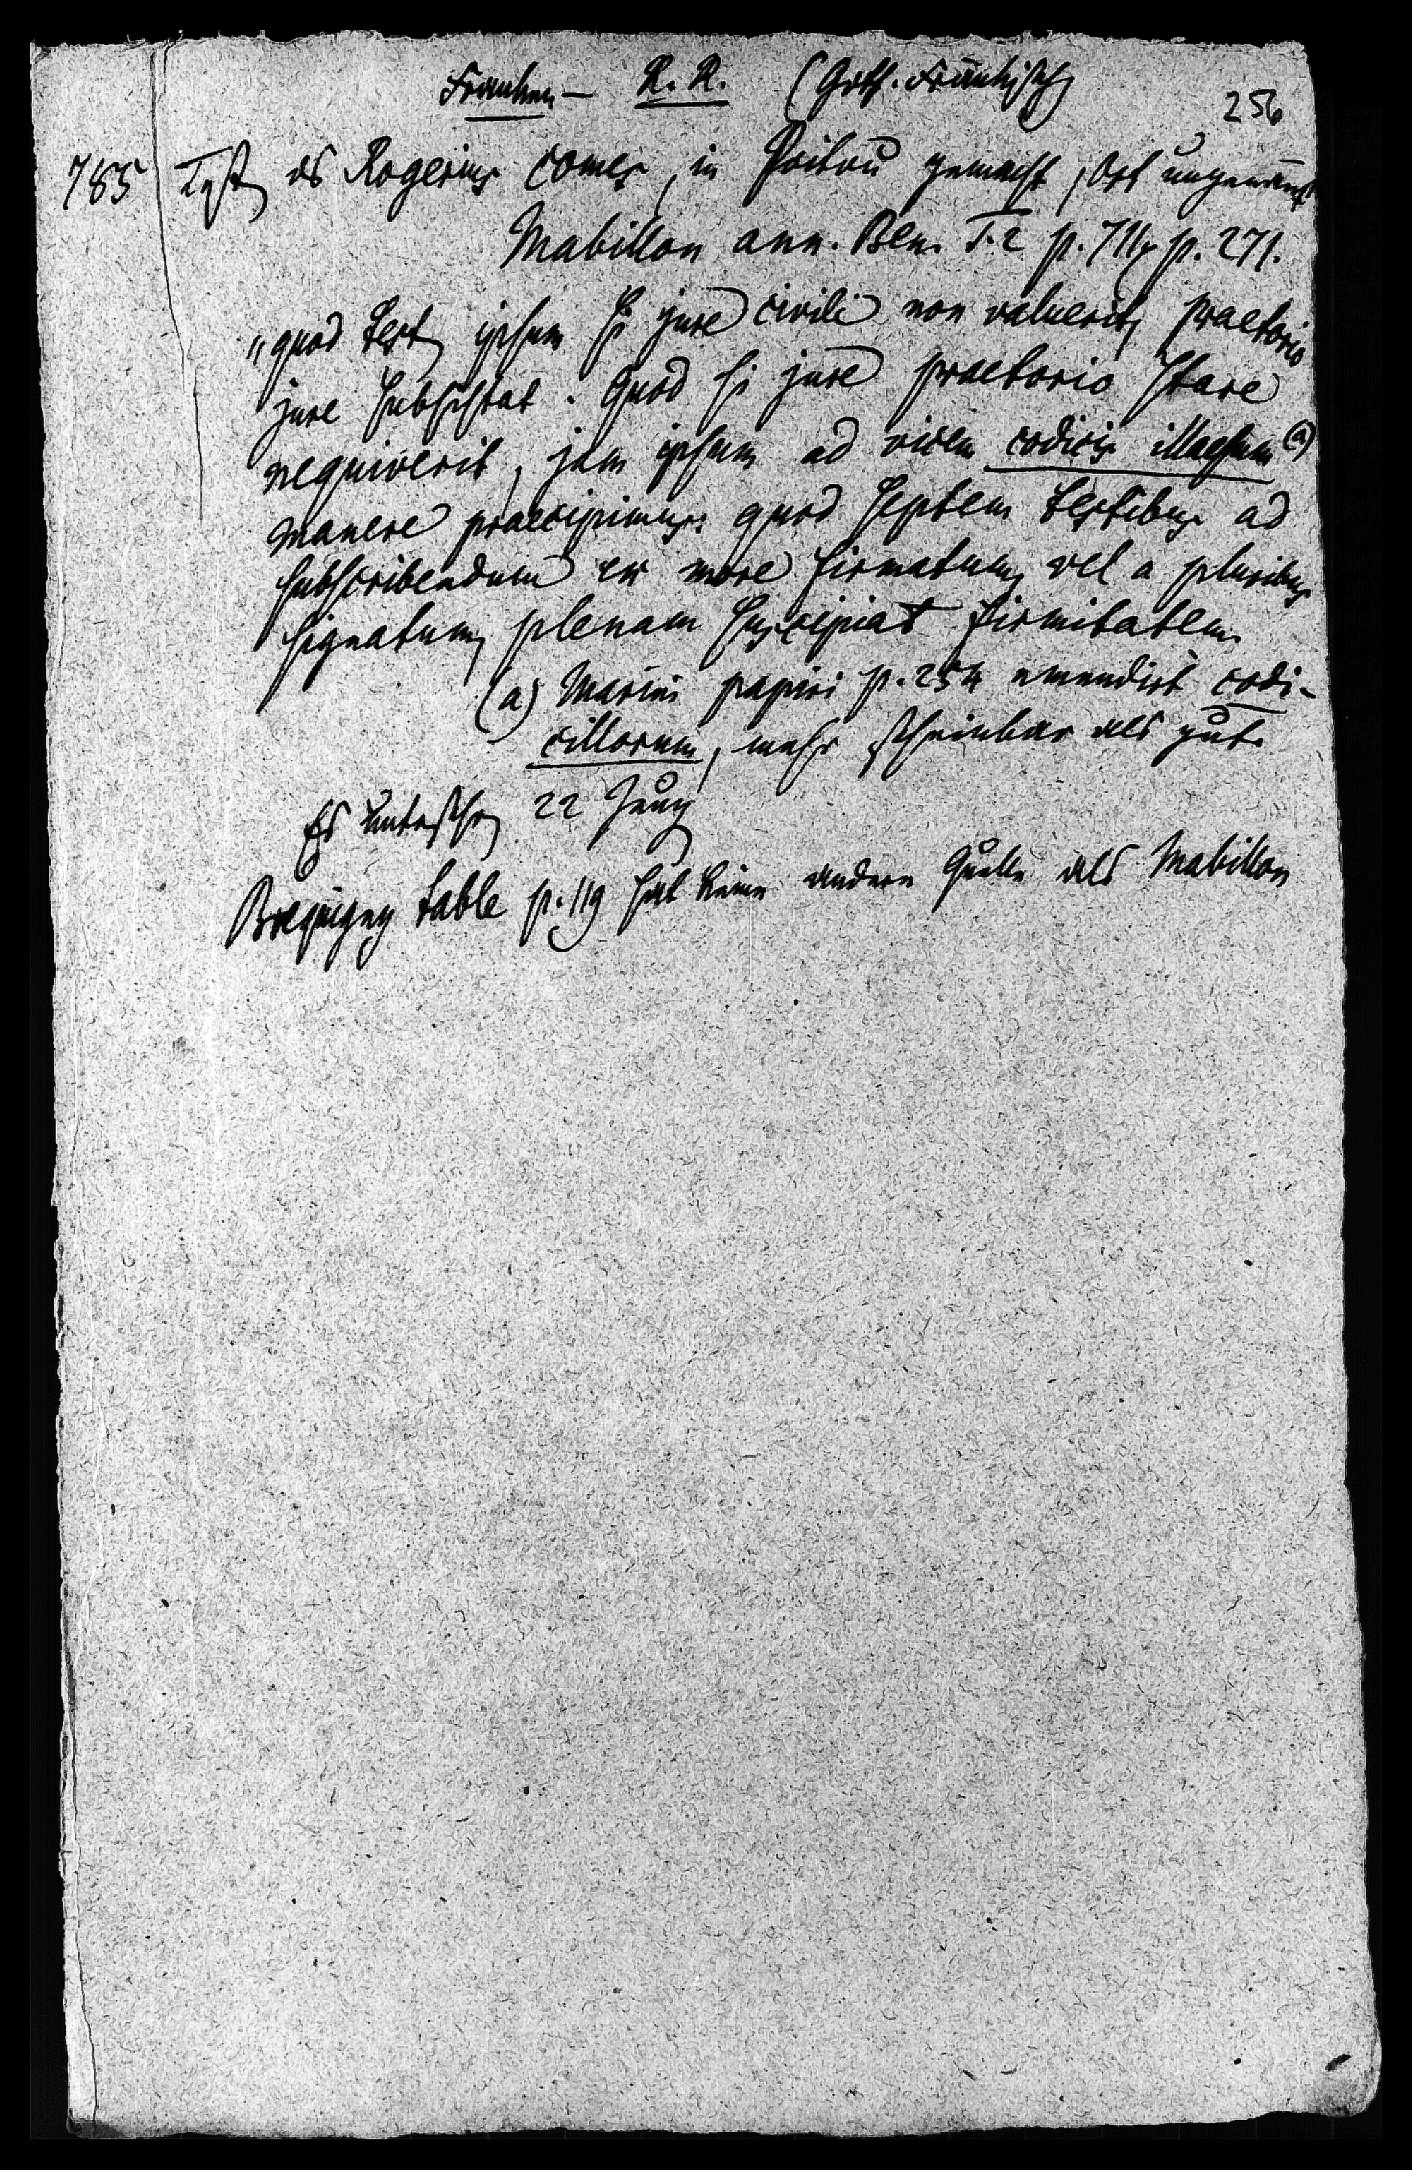 Franken – R. R. (Goth. Fränkisch)
256
785 Test. des Rogerius comes, in Poitou gemacht, Ort ungenannt
Mabillon ann. Ben. T. 2 p. 711, p. 271.
„quod test. ipsum si jure civili non valuerit, praetorio
jure subsistat. Quod si jure praetorio stare
nequiverit, jam ipsum ad vicem codicis illaesum (a)
manere praecipimus: quod septem testibus ad
subscribendum ex more firmatum, vel a pluribus
signatum, plenam suscipiat firmitatem.
(a) Marini papiri p. 254 emendirt codi-
cillorum, mehr scheinbar als gut.
Es 22 Juny
Brequigny table p. 119 hat keine andere Quelle als Mabillon